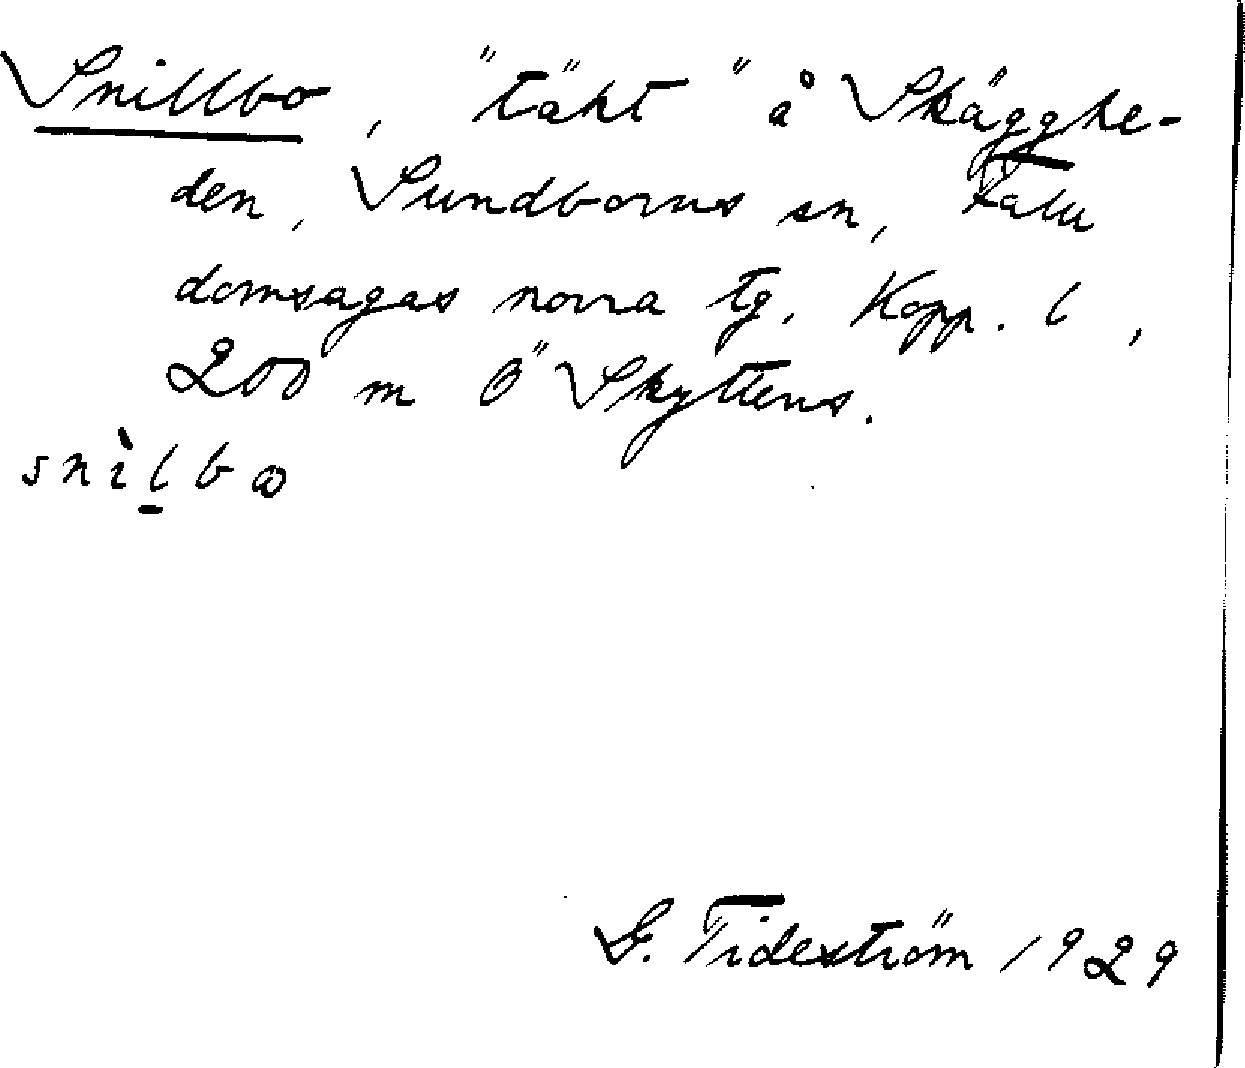 Snillbo, "täkt" å Skägghe-
den, Sundborns sn, Falu
domsagas norra tg, Kopp. l,
200 m Ö Skyttens.
snìlbω
G. Tideström 1929